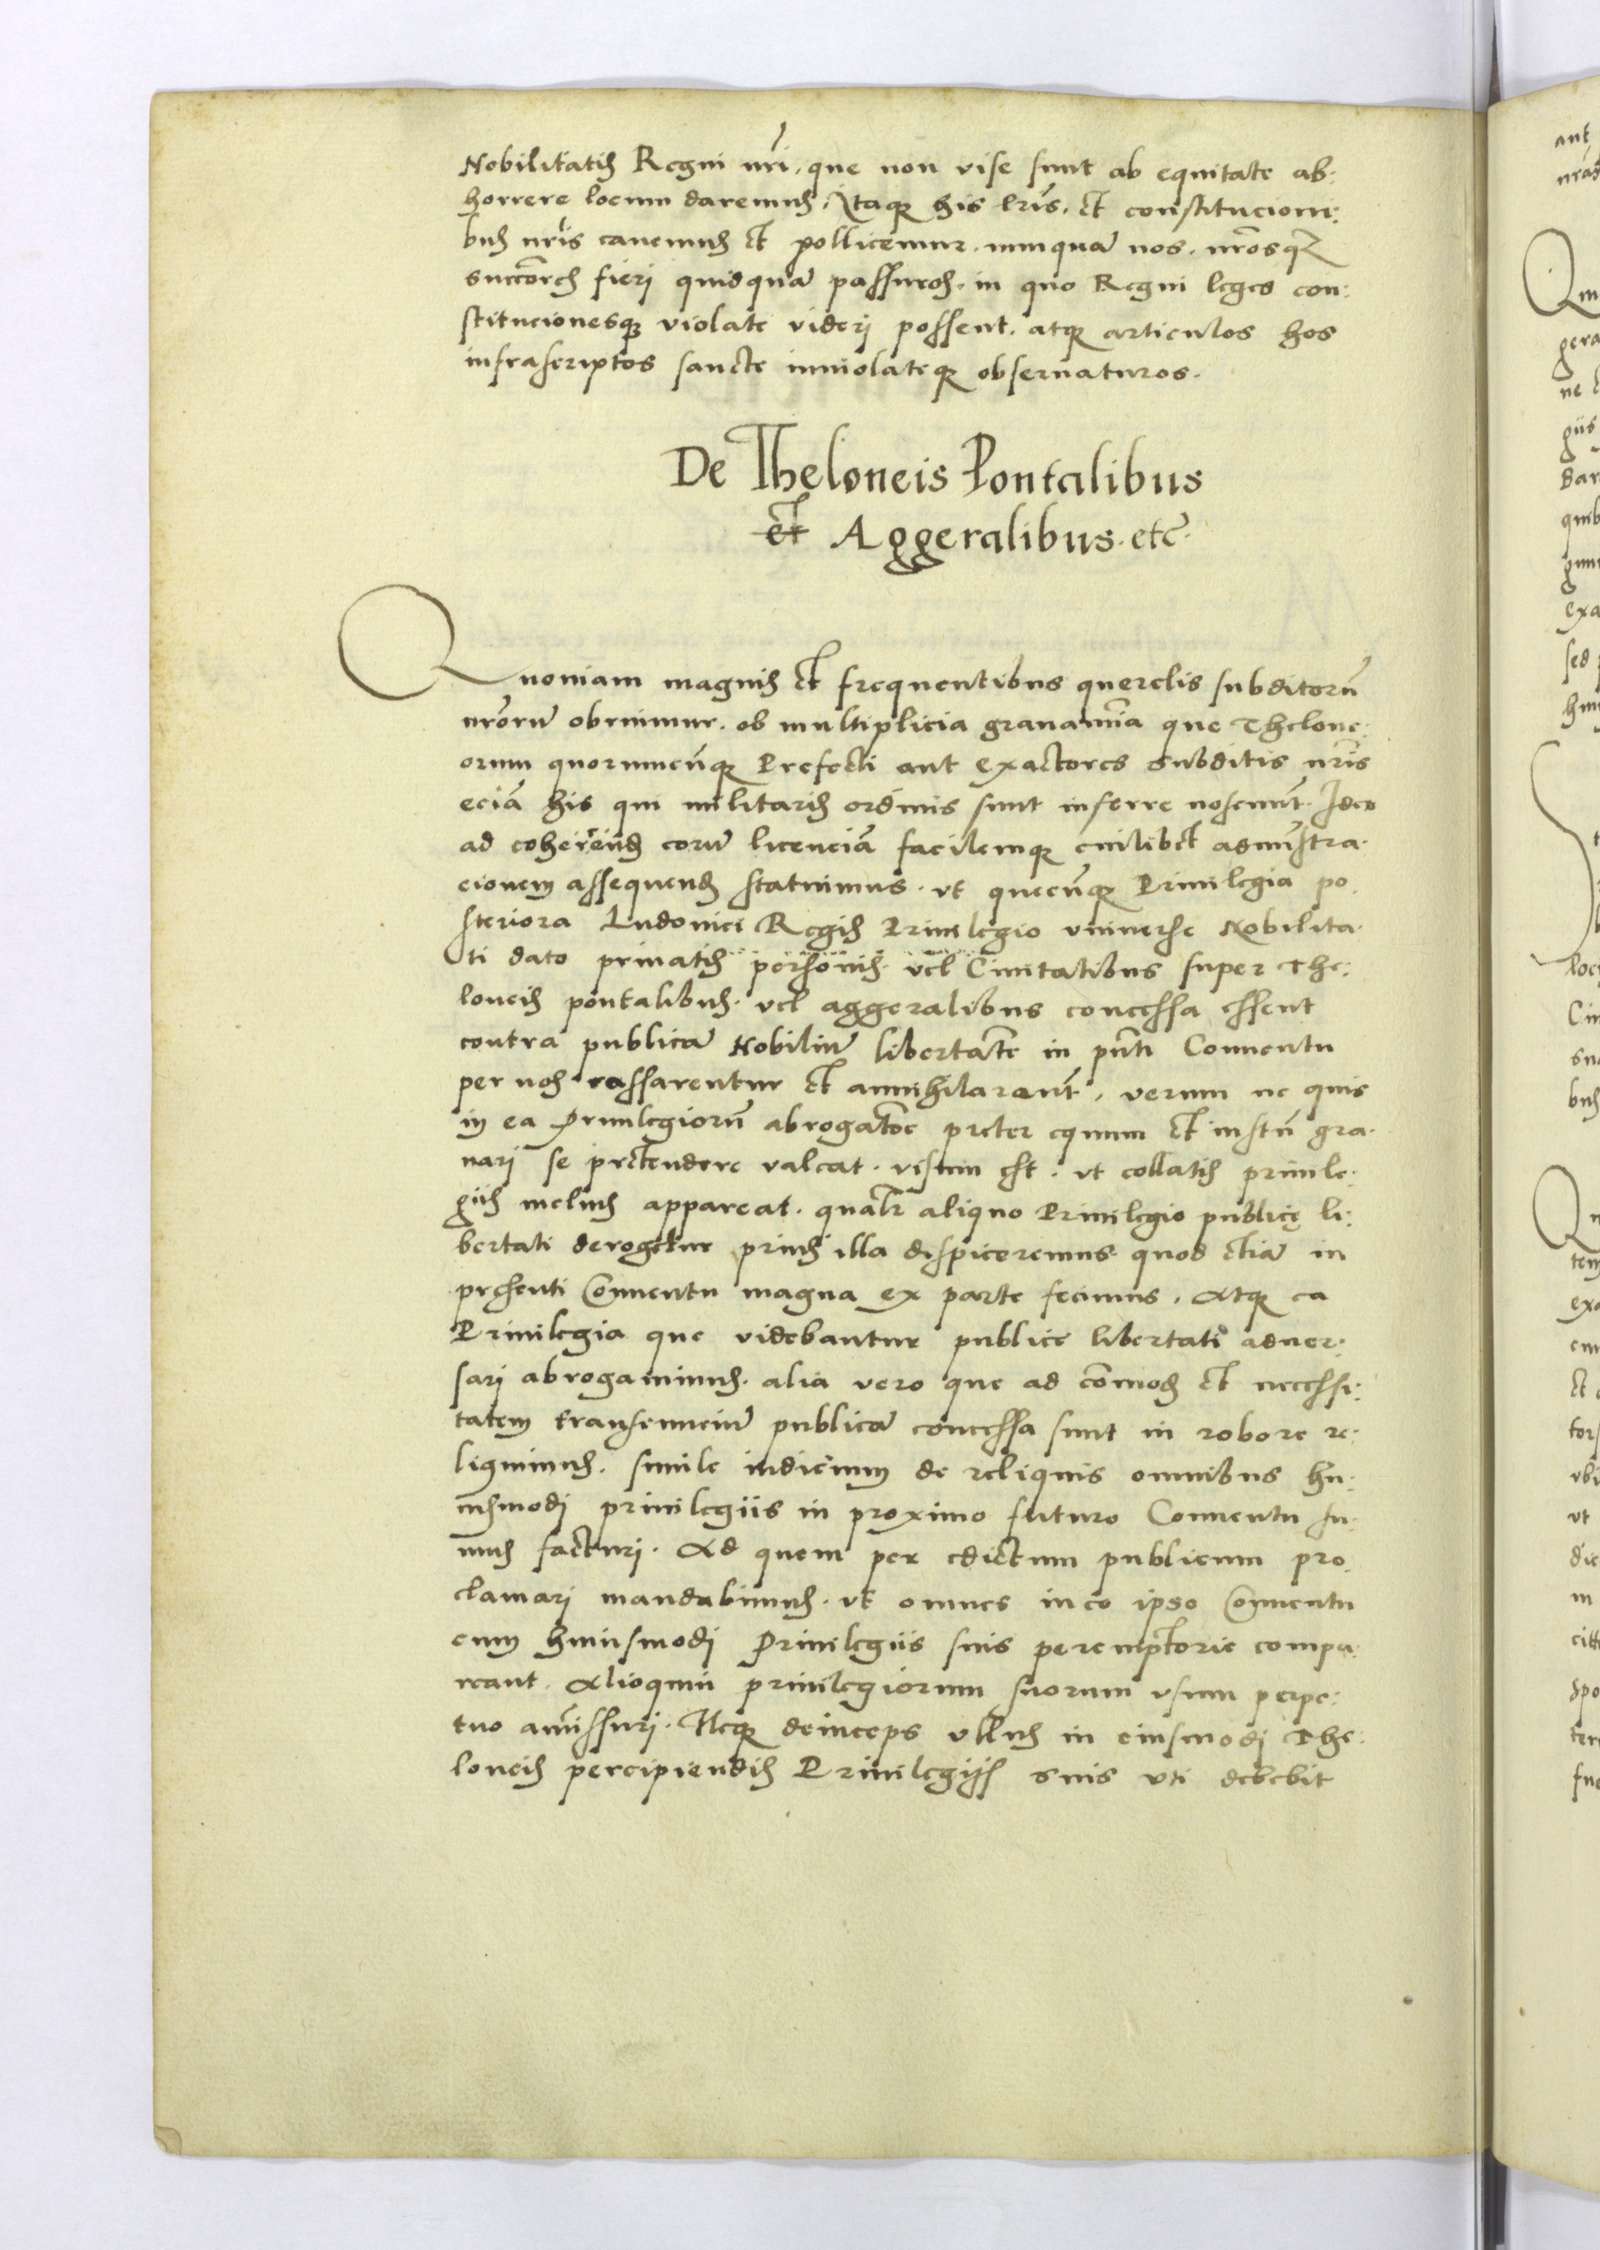 Nobilitatis Regni nr̃i, que non vise sunt ab equitate ab:
horrere locum daremus. Itaqꝫ his lr̃is, et constitucioni:
bus nr̃is cavemus et pollicemur. nunquã nos. nr̃osqꝫ
succõres fierj quidquã passuros. in quo Regni leges con:
stitucionesqꝫ violate viderj possent. atqꝫ articulos hos
infrascriptos sancte inviolateqꝫ observaturos.
De Theloneis Pontalibus
et Aggeralibus. etc̃.
Quoniam magnis et frequentibus querelis subditorũ
nr̃orũ obruimur. ob multiplicia gravam̃ia que Thelone:
orum quorumcũqꝫ Prefecti aut exactores subditis nr̃is
eciã his qui militaris ordinis sunt inferre noscunt̃. Ideo
ad cohercend eorũ licenciã facilemqꝫ cuilibet adm̃istra.
cionem assequend statuimus. vt quecũqꝫ Privilegia po.
steriora Ludovici Regis Privilegio universe Nobilita.
ti dato privatis personis. vel Civitatibus super The:
loneis pontalibus. vel aggeralibus concessa essent
contra publicã Nobiliũ libertatẽ in pñti Conventu
per nos cassarentur et annihilarent̃. verum ne quis
in ea Privilegiorũ abrogatõe preter equum et iustũ gra.
varj se pretendere valeat. visum est. vt collatis privile:
giis melius appareat. qualr̃ aliquo Privilegio publicę li:
bertati derogetur prius illa dispiceremus. quod etiã in
presenti Conventu magna ex parte fecimus. Atqꝫ ea
Privilegia que videbantur publice libertati adver.
sarj abrogavimus. alia vero que ad com̃od et necessi:
tatem transeunciũ publicã concessa sunt in robore re:
liquimus. simile iudicium de reliquis omnibus hu.
iusmodj privilegiis in proximo futuro Conventu su.
mus facturj. Ad quem per edictum publicum pro.
clamarj mandabimus. vt omnes in eo ipso Conventu
cum huiusmodj Privilegiis suis peremptorie compa.
reant. Alioquin privilegiorum suorum vsum perpe:
tuo am̃issurj. Neqꝫ deinceps vllus in eiusmodj The:
loneis percipiendis Privilegijs suis vti debebit